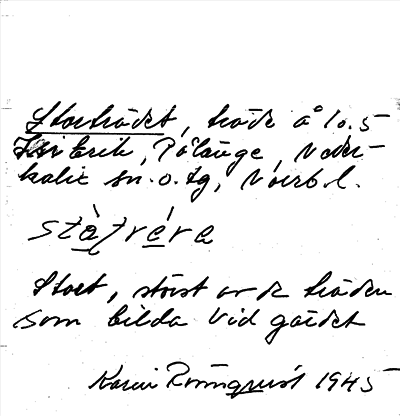 Storträdet, träde å lo. 5
Per Erik, Pålänge, Neder-
kalix sn. o. tg, Norrb. l.
stàtrére
Stort, störst av de träden
som bilda Vid gärdet
Karin Rönnquist 1945